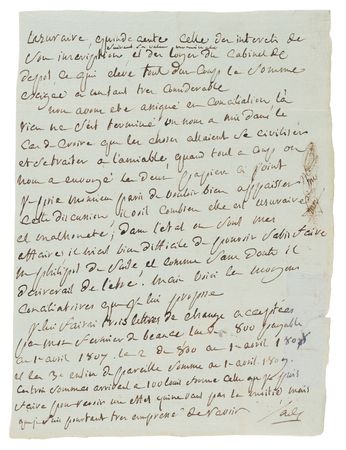 usuraire, quinde cente celle des interets de
son inscription et des loyer du Cabinet de
depot ce qui eleve tout d'un coup la somme
exigee a autant tres considerable
nous avons ete assigné en Conciliation là
rien ne s'est terminé on nous a mis dans le
Cas de croire que les choses allaient se civiliser
et se traiter a l'amiable, quand tout a coup on
nous a envoyé les deux papiers ci joint
Je prie monsieur paris de vouloir bien
Cette discussion il voit combien elle est usuraire
et malhonete; dans l'etat ou sont mes
affaires il m'est bien difficile de pouvoir satisfaire
m philipot de suite et comme sans doute il
desirerait de l'etre. mais voici les moyens
Conciliatoires que je lui propose
Je lui fairai trois lettres de change acceptées
par mon fermier de beauce la 1re 800 payable
au 1 avril 1807. le 2 de 800 au 1 avril 1808
et la 3e enfin de pareille somme au 1 avril 1809.
Ces trois sommes a 100 louis forme celle que je puis
faire pour ravoir un effet qui ne vaut pas la moitié mais
que je suis pourtant tres empressé de ravoir Sade